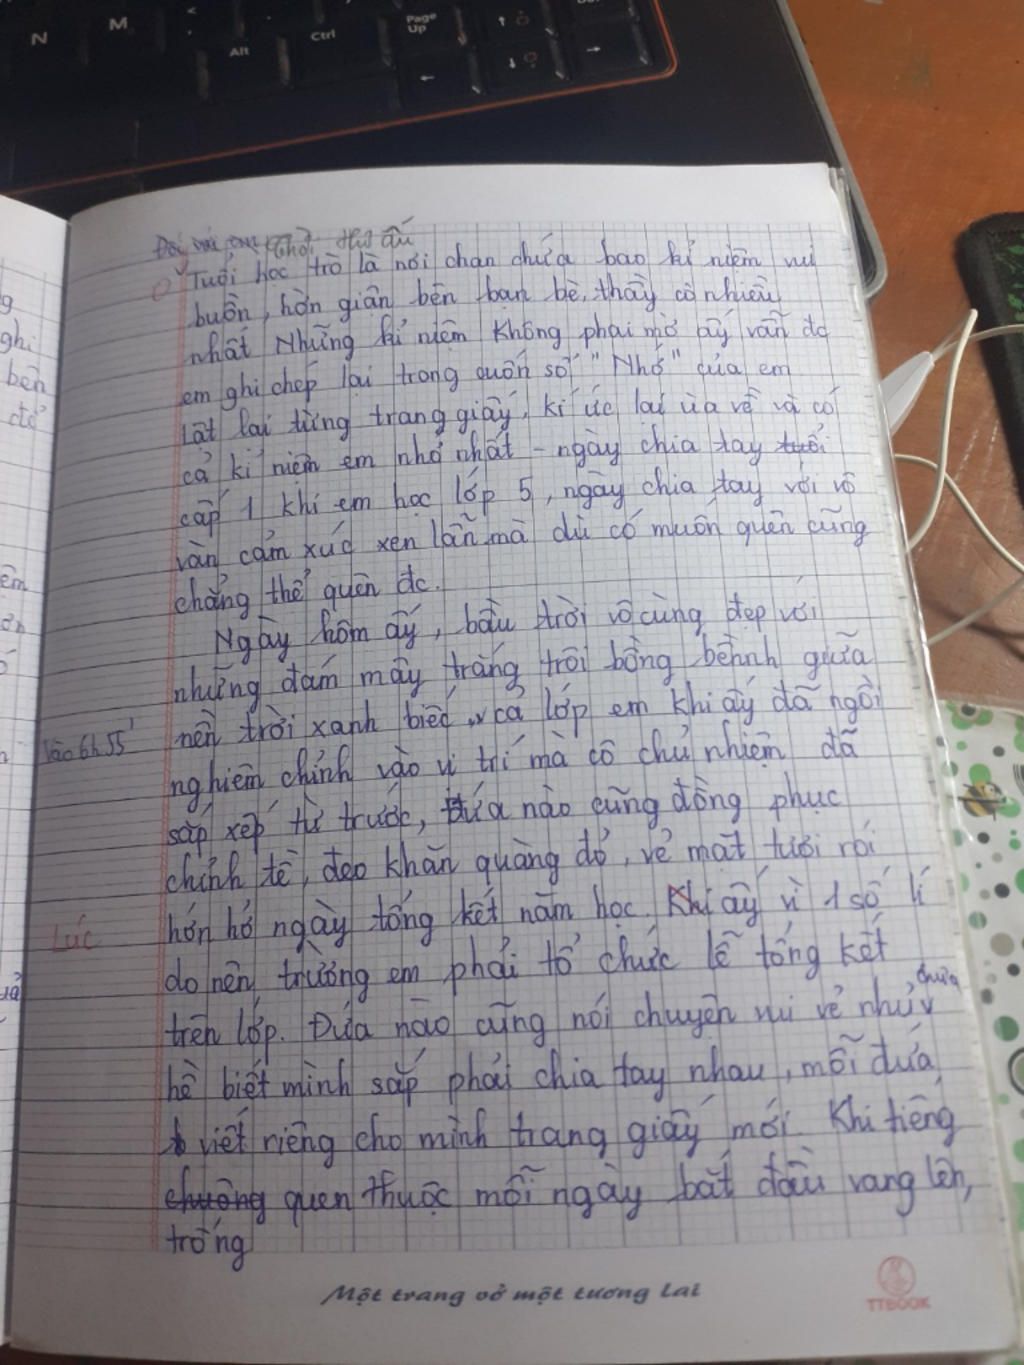 N
M
Alt
Ctrl
Page Up
Đối với em thời thơ ấu
Tuổi học trò là nơi chan chứa bao kỉ niệm vui
buồn, hờn giận bên bạn bè, thầy cô nhiều
nhất Những kỉ niệm không phai mờ ấy vẫn đc
em ghi chép lại trong cuốn sổ "Nhớ" của em
Lật lại từng trang giấy, kí ức lại ùa về và có
cả kỉ niệm em nhớ nhất - ngày chia tay tuổi
cấp 1 khi em học lớp 5, ngày chia tay với vô
vàn cảm xúc xen lẫn mà dù có muốn quên cũng
chẳng thể quên đc.
Ngày hôm ấy, bầu trời vô cùng đẹp với
những đám mây trắng trôi bồng bềnh giữa
nền trời xanh biếc, cả lớp em khi ấy đã ngồi
Vào 6h55'
nghiêm chỉnh vào vị trí mà cô chủ nhiệm đã
sắp xếp từ trước, đứa nào cũng đồng phục
chỉnh tề, đeo khăn quàng đỏ, vẻ mặt tươi rói
hớn hở ngày tổng kết năm học. Khi ấy vì 1 số lí
Lúc
do nên trường em phải tổ chức lễ tổng kết
trên lớp. Đứa nào cũng nói chuyện vui vẻ như chưa
hề biết mình sắp phải chia tay nhau, mỗi đứa
viết riêng cho mình trang giấy mới. Khi tiếng
chuông quen thuộc mỗi ngày bắt đầu vang lên,
trống
Một trang vở một tương lai
TTBOOK
g
ghi
bên
đc